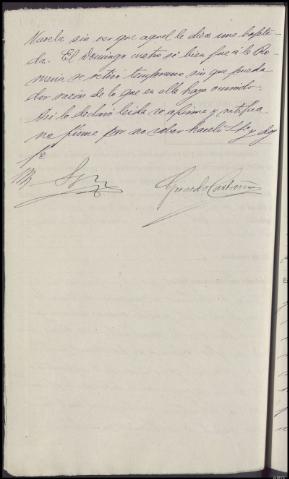 Varela sin ver que aquel le diera una bofeta-
da. El Domingo cuatro si bien fué a la Ro-
mería se retiró temprano sin que pueda
dar razón de lo que en ella haya ocurrido.
Así lo declaró leida se afirma y ratifica
no firma por no saber hacelo S. Sª y doy
fe